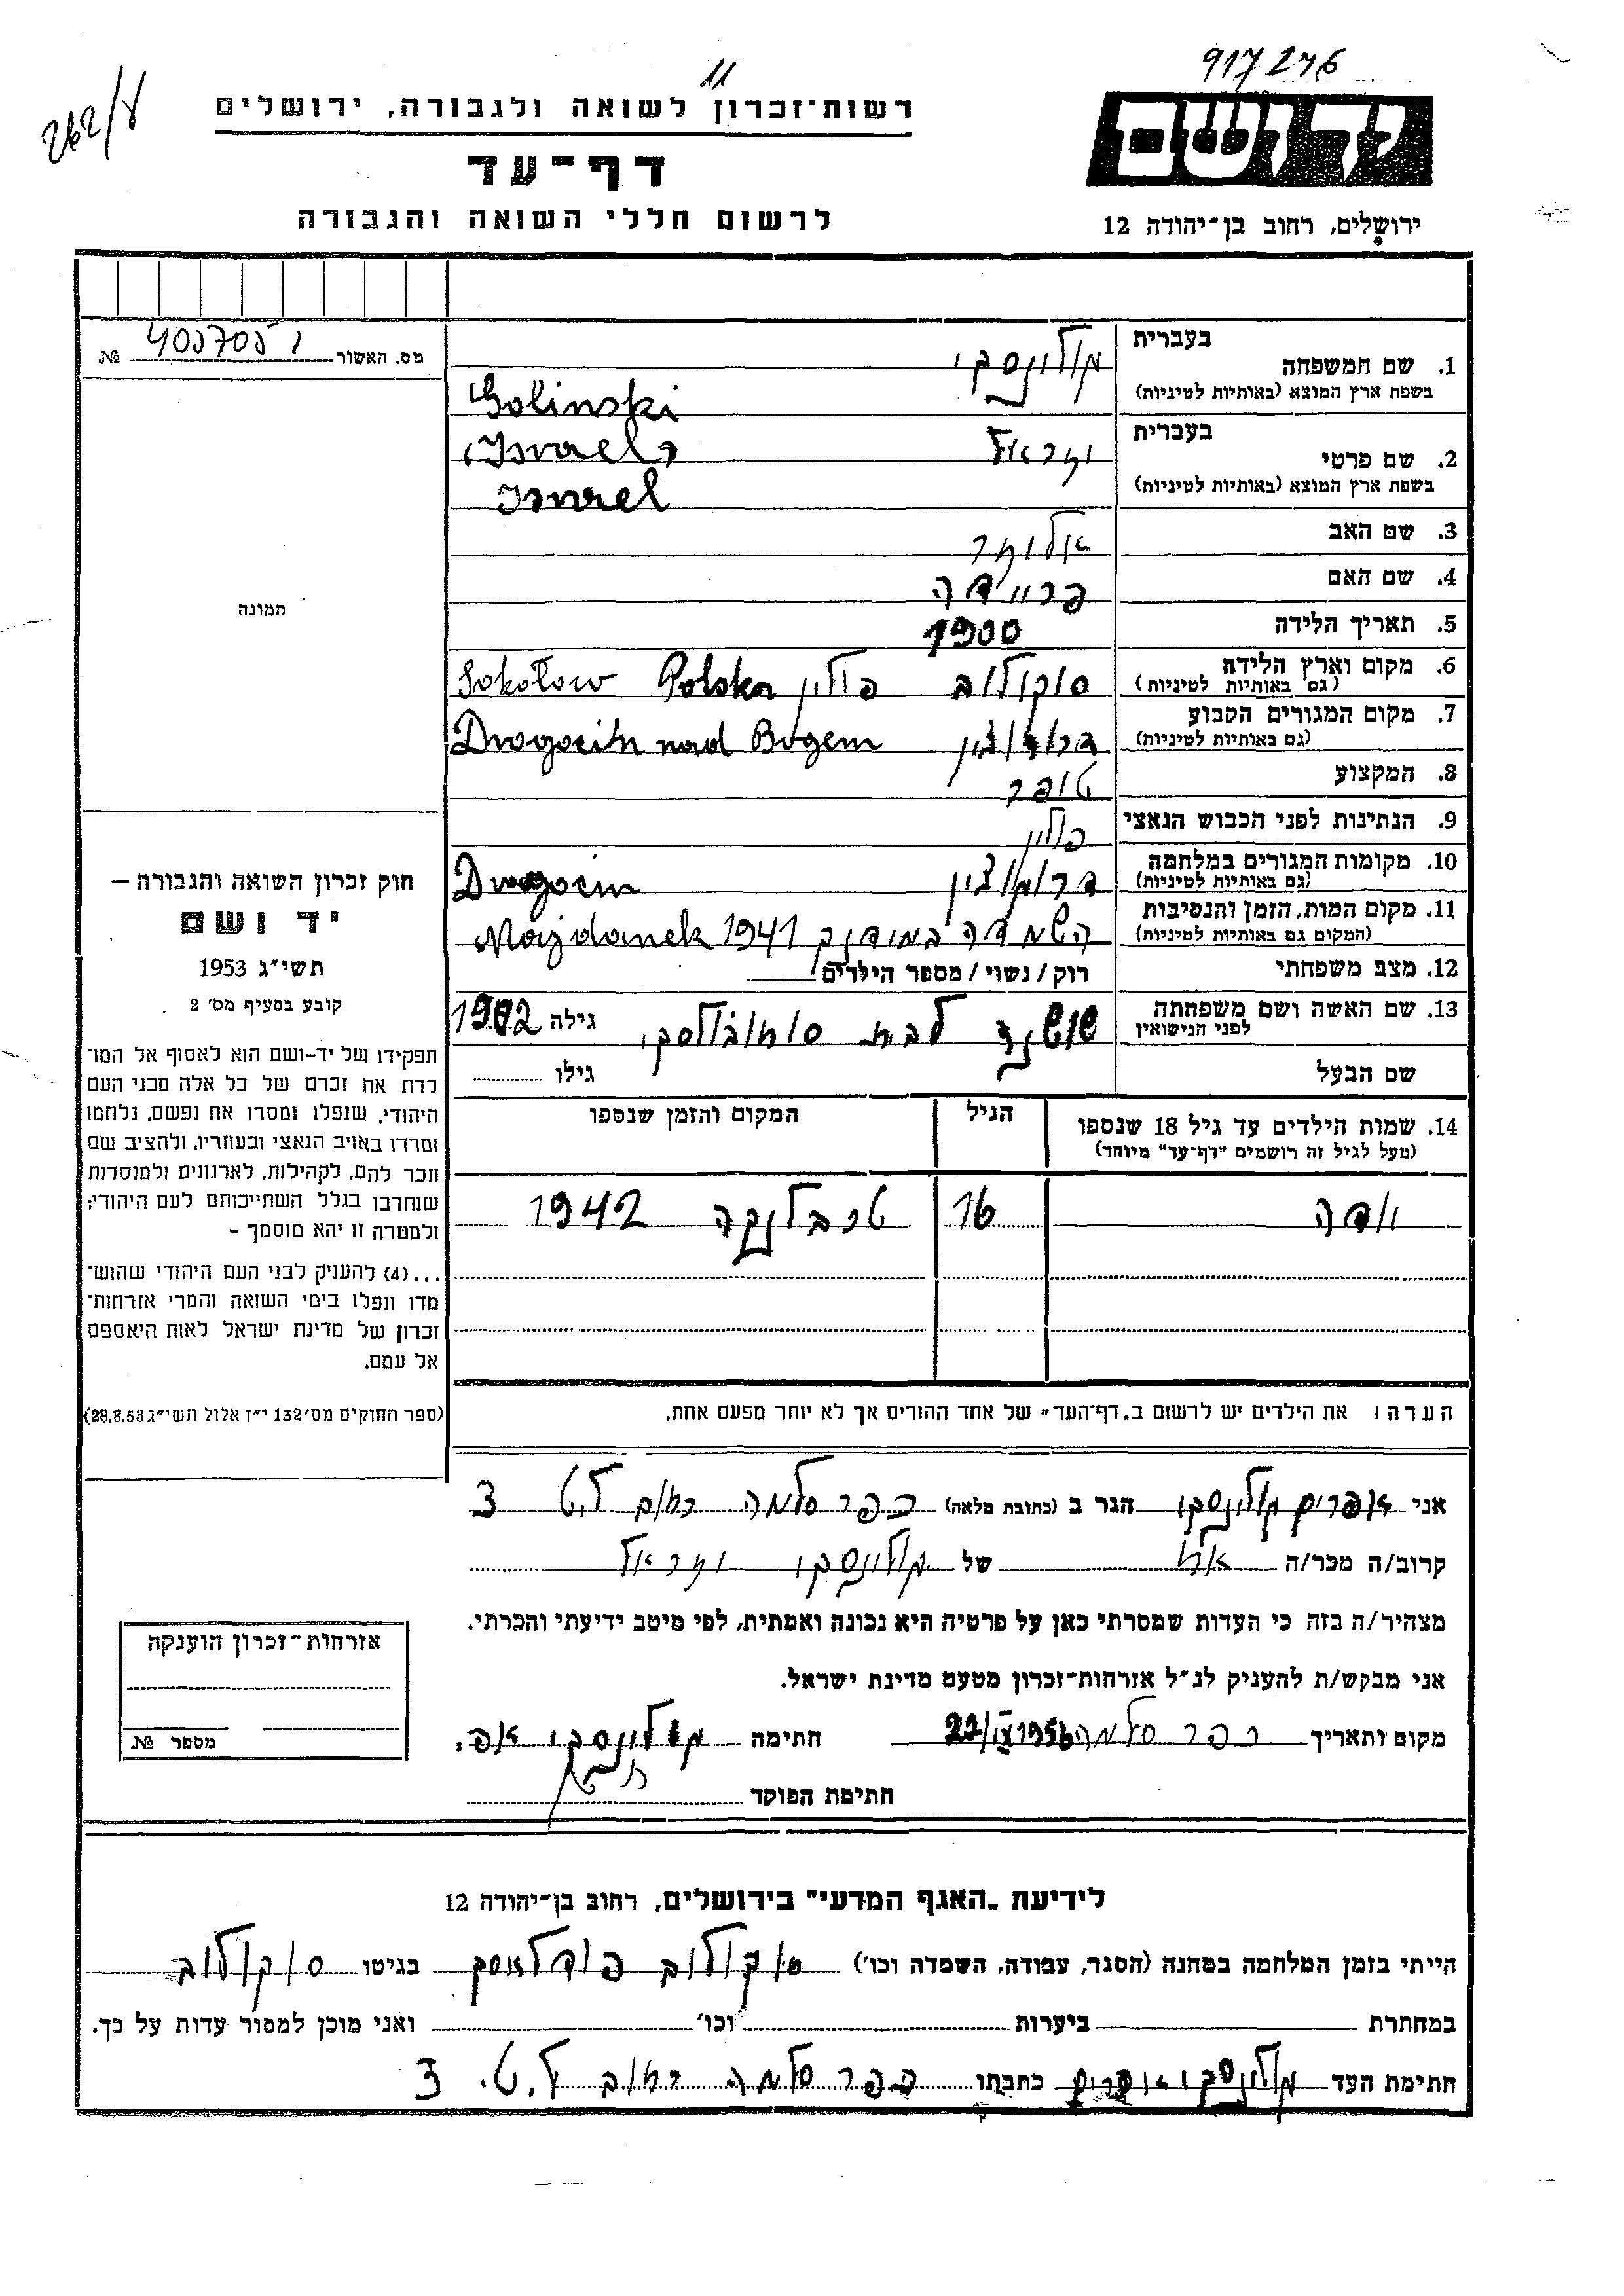 917276
262/ע
11
רשות־זכרון לשואה ולגבורה, ירושלים
דף־עד
לרשום חללי השואה והגבורה
ידושם
ירושלים, רחוב בן־יהודה 12
מס. האשור № 405705
1. שם המשפחה
בעברית
בשפת ארץ המוצא (באותיות לטיניות)
גולינסקי
Golinski
2. שם פרטי
בעברית
בשפת ארץ המוצא (באותיות לטיניות)
ישראל
(Israel)
Isnrel
3. שם האב
אליעזר
4. שם האם
פריידה
5. תאריך הלידה
1900
6. מקום וארץ הלידה
(גם באותיות לטיניות)
סוקולוב פולין Polska Sokołow
7. מקום המגורים הקבוע
(גם באותיות לטיניות)
Drogocin nad Bugem
8. המקצוע
סופר
9. הנתינות לפני הכבוש הנאצי
פולין
10. מקומות המגורים במלחמה
(גם באותיות לטיניות)
דרוגוצין Drogocin
11. מקום המות, הזמן והנסיבות
(המקום גם באותיות לטיניות)
השמדה במידנק 1941 Majdanek
12. מצב משפחתי
רוק/נשוי/מספר הילדים
13. שם האשה ושם משפחתה
לפני הנישואין
שושנה לבית גילה 1902
שם הבעל
גילו
14. שמות הילדים עד גיל 18 שנספו
(מעל לגיל זה רושמים "דף־עד" מיוחד)
הגיל
המקום והזמן שנספו
יודה 16 טרבלינקה 1942
הערה: את הילדים יש לרשום ב„דף־העד" של אחד ההורים אך לא יותר מפעם אחת.
תמונה
חוק זכרון השואה והגבורה —
יד ושם
תשי״ג 1953
קובע בסעיף מס׳ 2
תפקידו של יד-ושם הוא לאסוף אל המו־
לדת את זכרם של כל אלה מבני העם
היהודי, שנפלו ומסרו את נפשם, נלחמו
ומרדו באויב הנאצי ובעוזריו, ולהציב שם
וזכר להם, לקהילות, לארגונים ולמוסדות
שנחרבו בגלל השתייכותם לעם היהודי;
ולמטרה זו יהא מוסמך –
...(4) להעניק לבני העם היהודי שהוש־
מדו ונפלו בימי השואה והמרי אזרחות־
זכרון של מדינת ישראל לאות היאספם
אל עמם.
(ספר החוקים מס׳ 132 י״ז אלול תשי״ג 28.8.53)
אני אפרים גולינסקי הגר ב (כתובת מלאה) כפר סלמה רחוב 3
קרוב/ה מכר/ה אח של גולינסקי ישראל
מצהיר/ה בזה כי העדות שמסרתי כאן על פרטיה היא נכונה ואמתית, לפי מיטב ידיעתי והכרתי.
אני מבקש/ת להעניק לנ״ל אזרחות־זכרון מטעם מדינת ישראל.
מקום ותאריך כפר סלמה 22/IX 1956 חתימה גולינסקי אפ.
חתימת הפוקד
אזרחות־זכרון הוענקה
מספר №
לידיעת „האגף המדעי" בירושלים, רחוב בן־יהודה 12
הייתי בזמן המלחמה במחנה (הסגר, עבודה, השמדה וכו׳) סוקולוב פודלאסק בגיטו סוקולוב
במחתרת ביערות וכו׳ ואני מוכן למסור עדות על כך.
חתימת העד גולינסקי אפרים כתבתו כפר סלמה רחוב 3